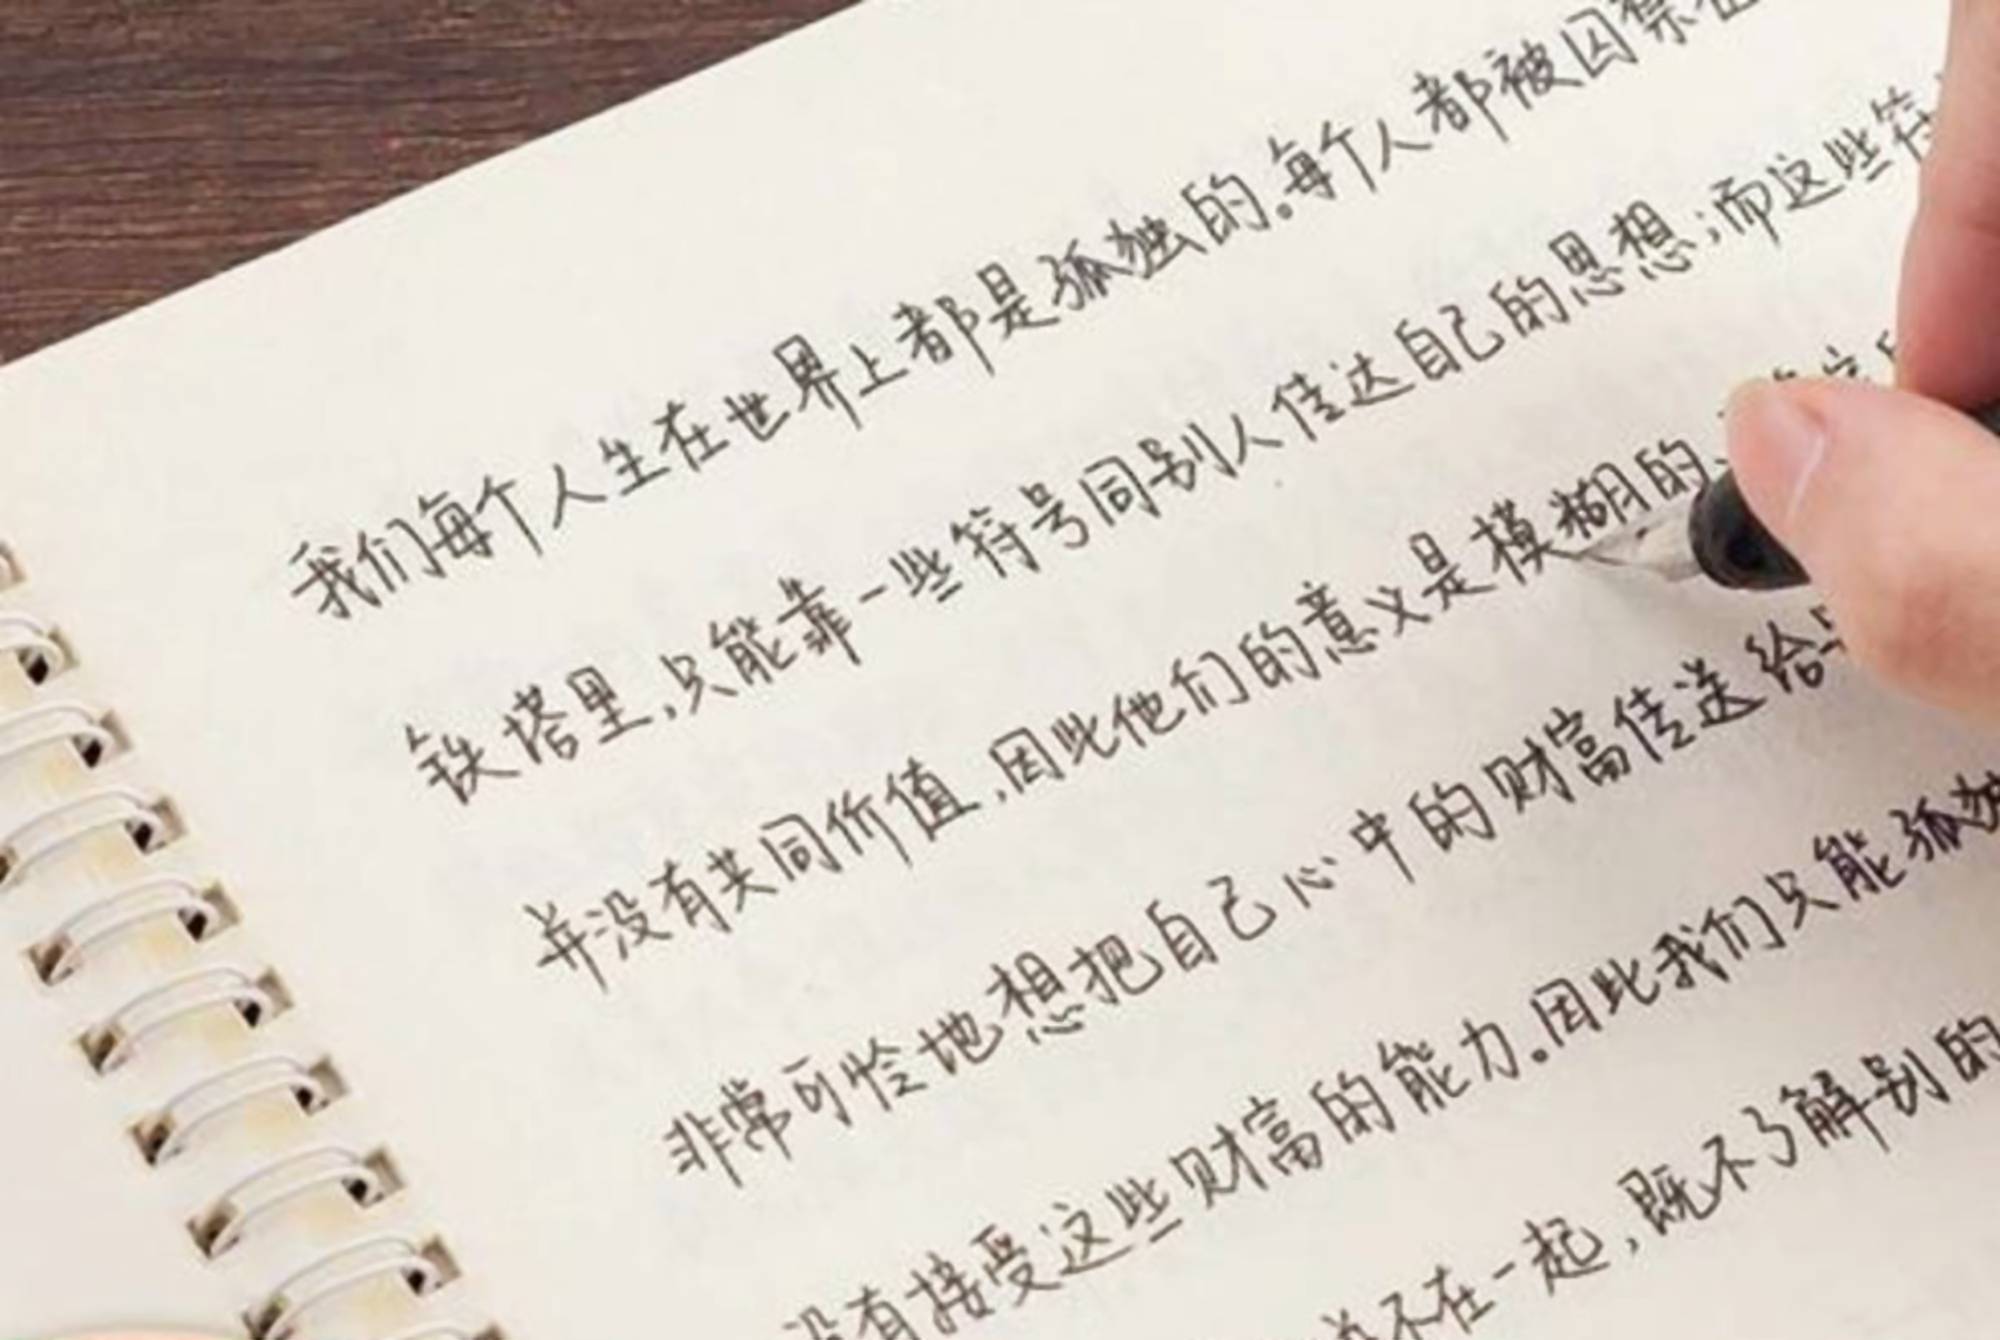 我们每个人生在世界上都是孤独的。每个人都被囚禁在
铁塔里,只能靠一些符号同别人传达自己的思想;而这些符
并没有共同价值,因此他们的意义是模糊的、
非常可怜地想把自己心中的财富传送给
没有接受这些财富的能力。因此我们只能孤独
不在一起,既不了解别的